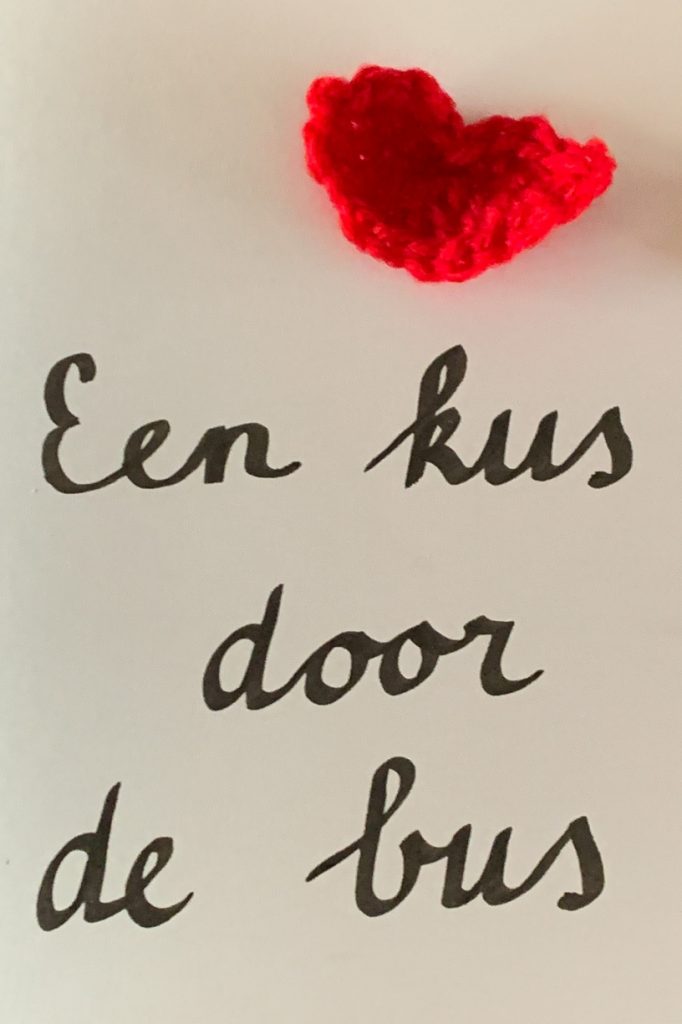 Een kus
door
de bus